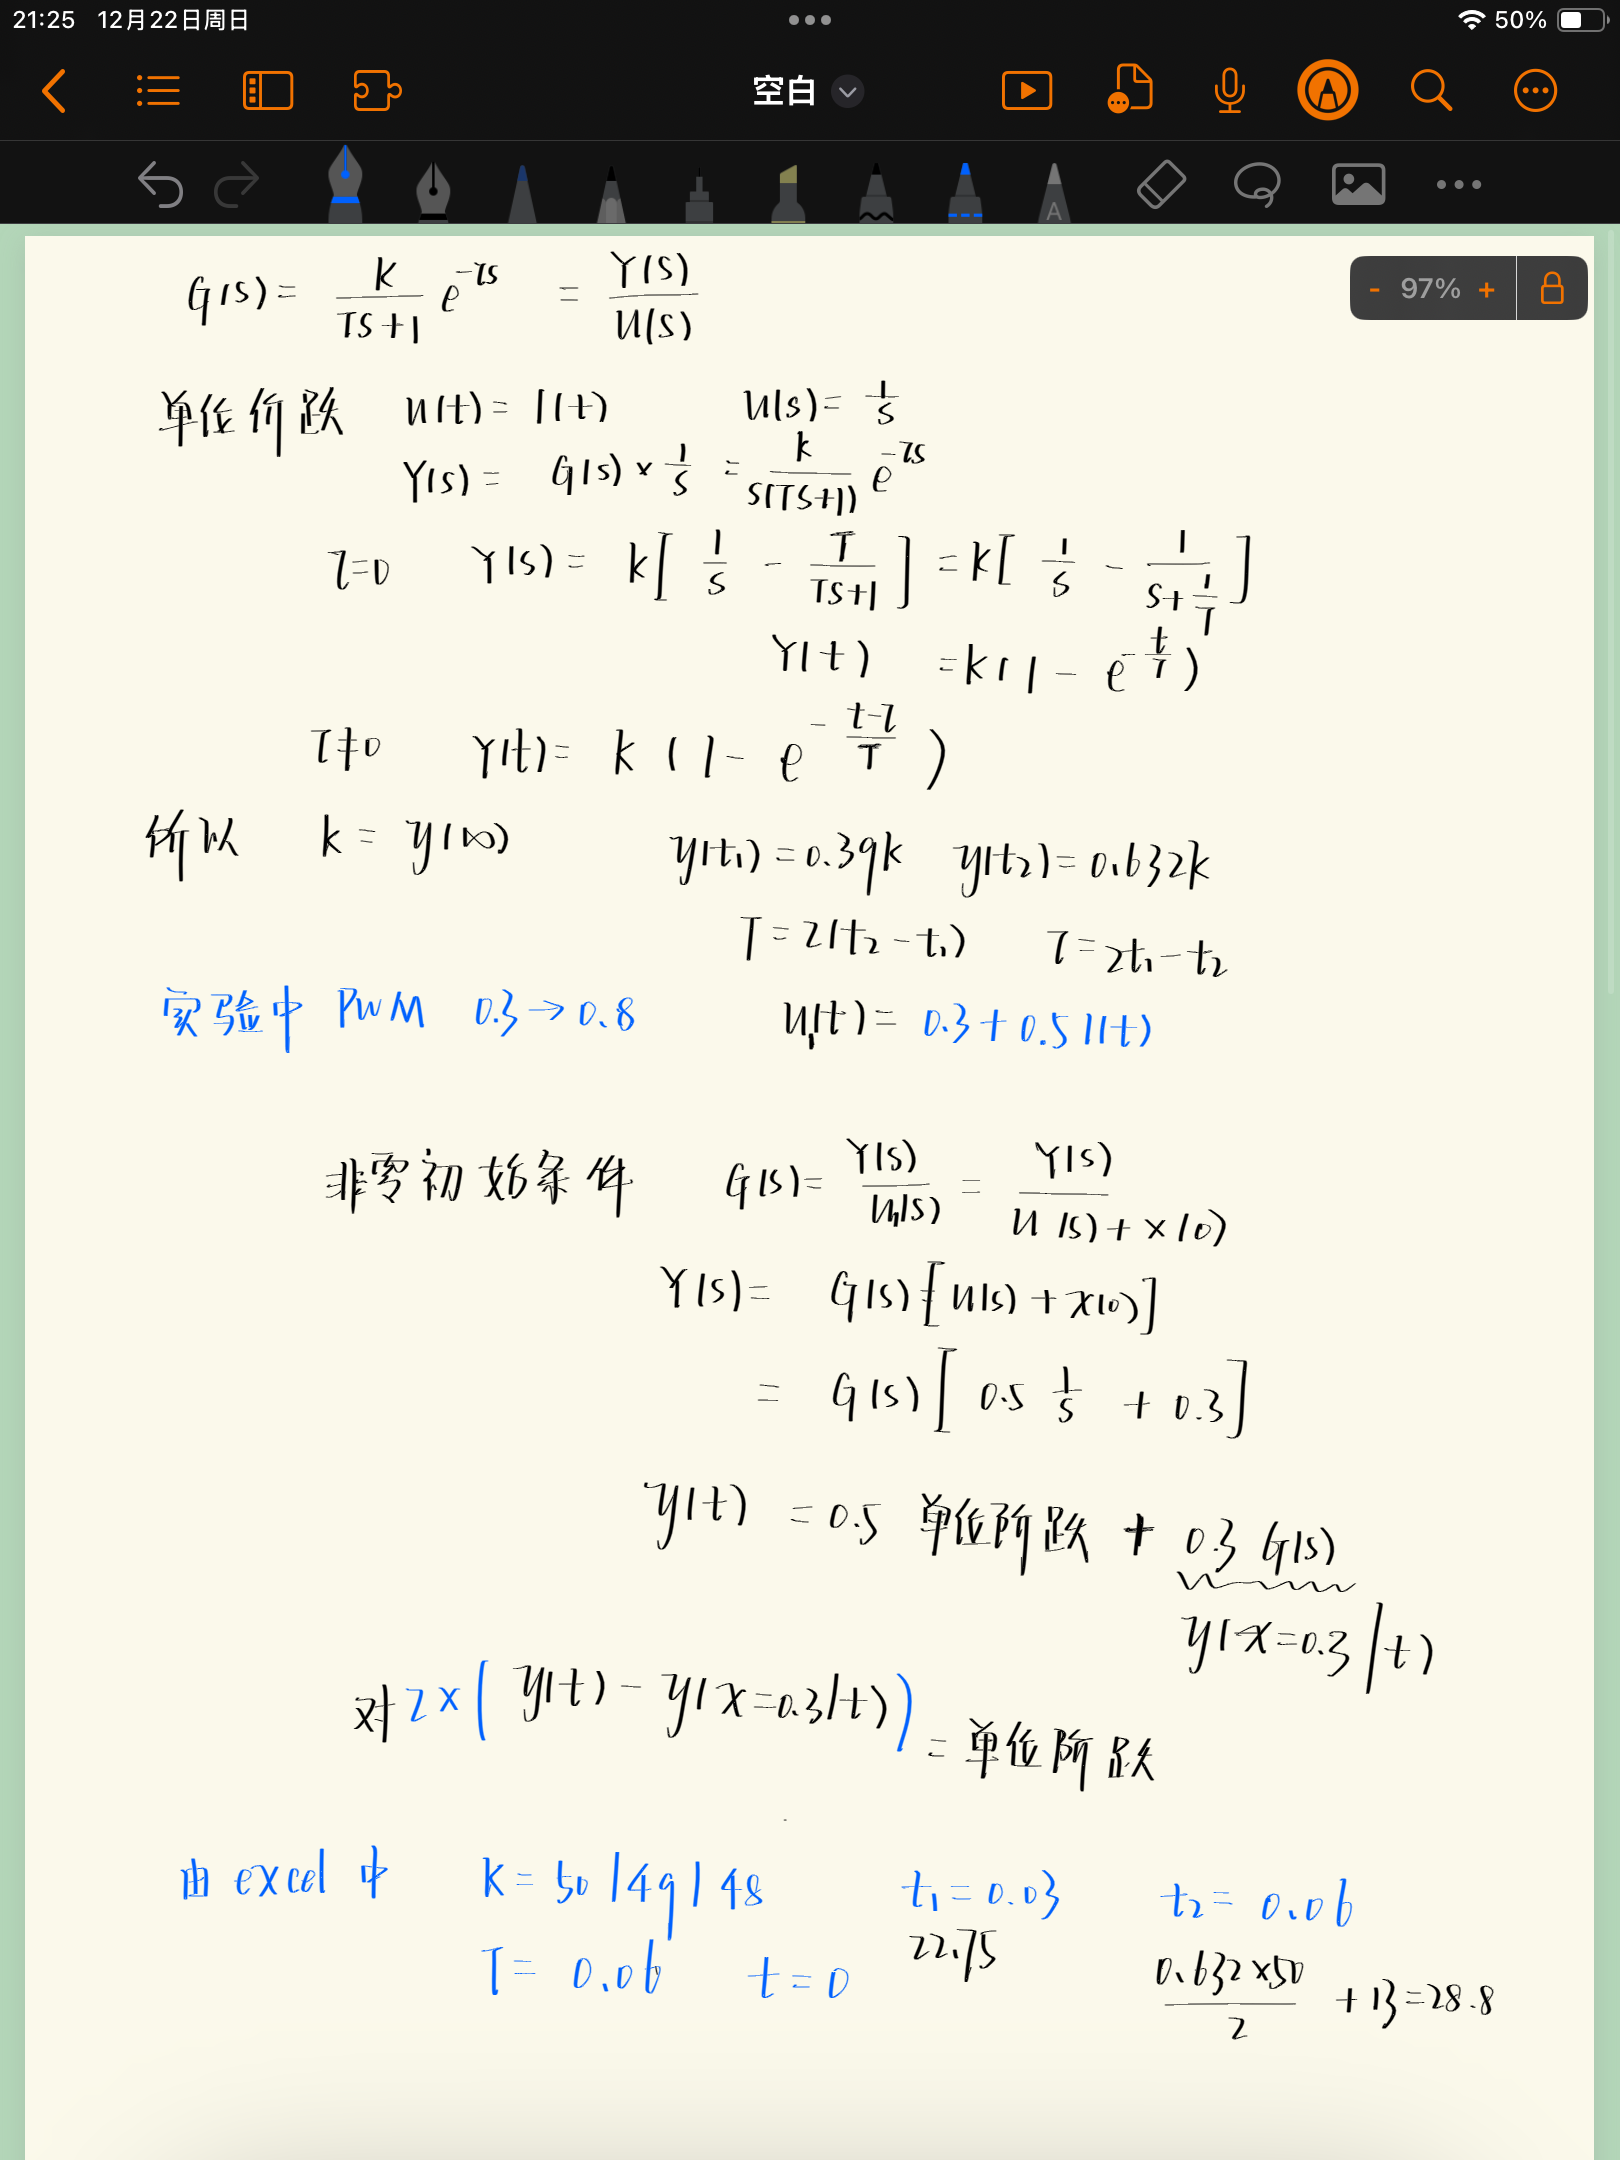 21:25 12月22日周日 50%
空白
A
- 97% +
G(s) = K/(Ts+1) e^{-τs} = Y(s)/U(s)
单位价跌 u(t) = 1(t) U(s) = 1/s
Y(s) = G(s) × 1/s = k/(s(Ts+1)) e^{-τs}
τ=0 Y(s) = k[ 1/s - T/(Ts+1) ] = k[ 1/s - 1/(s+1/T) ]
Y(t) = k(1 - e^{-t/T})
τ≠0 Y(t) = k (1 - e^{-(t-τ)/T})
所以 k = y(∞) y(t₁) = 0.39k y(t₂) = 0.632k
T = 2(t₂-t₁) τ = 2t₁-t₂
实验中 PWM 0.3→0.8 u₁(t) = 0.3+0.5 1(t)
非零初始条件 G(s) = Y(s)/U₁(s) = Y(s)/(U(s)+x(0))
Y(s) = G(s)[U(s)+x(0)]
= G(s)[ 0.5 1/s + 0.3]
y(t) = 0.5 单位阶跌 + 0.3 G(s)
y(x=0.3|t)
对 2×( y(t) - y(x=0.3|t)) = 单位阶跌
由 excel 中 K = 50/49/48 t₁ = 0.03 t₂ = 0.06
T = 0.06 t = 0 22.75 (0.632×50)/2 + 13 = 28.8